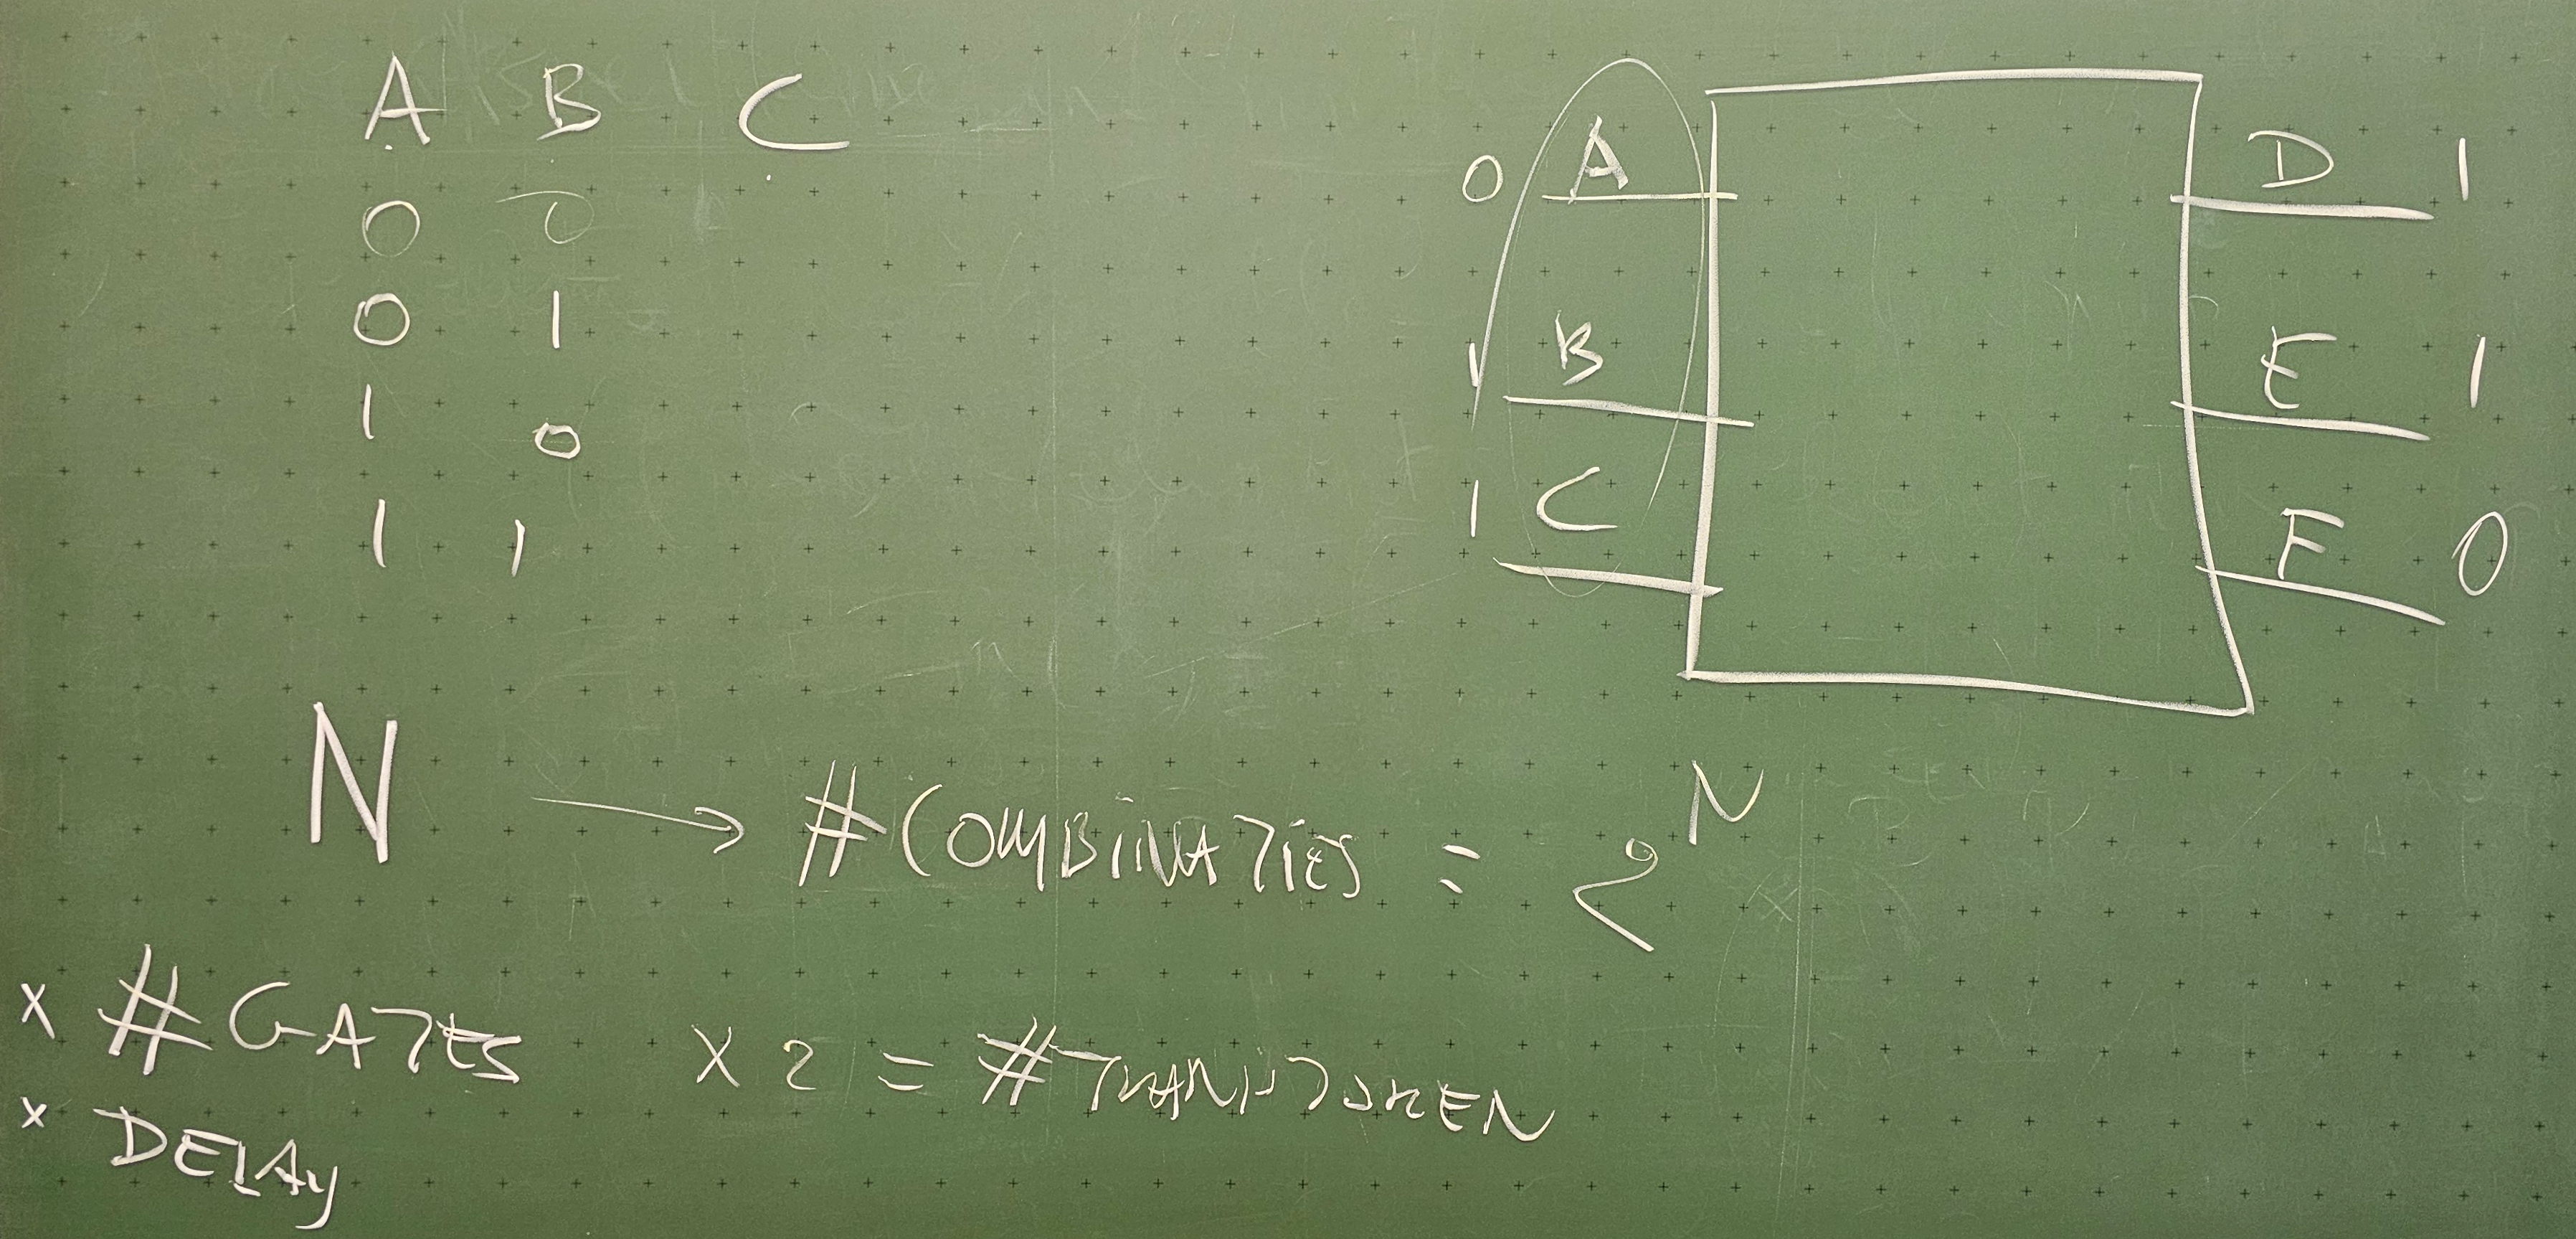 A B C
0 0
0 1
1 0
1 1
0 A
1 B
1 C
D 1
E 1
F 0
N → #COMBINATIES = 2^N
x #GATES x 2 = #TRANSISTOREN
x DELAY